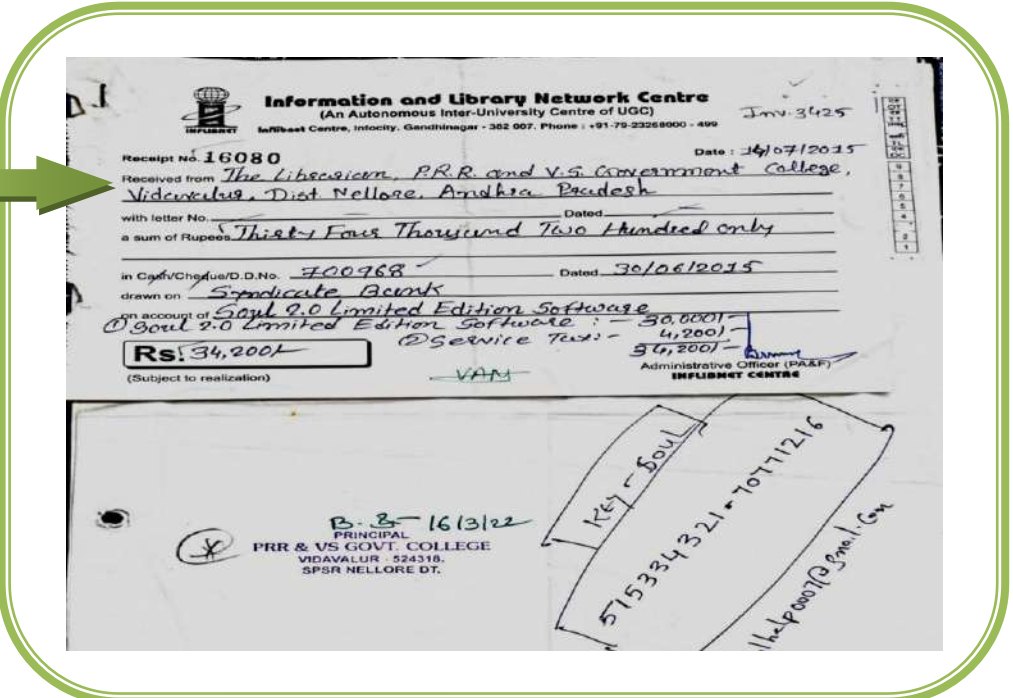 Information and Library Network Centre
(An Autonomous Inter-University Centre of UGC)
Inv. 3425
INFLIBNET
Inflibnet Centre, Infocity, Gandhinagar - 382 007. Phone : +91-79-23268000 - 499
Receipt No. 16080
Date : 14/07/2015
Received from The Librarian, P.R.R. and V.S. Government College,
Vidavalur, Dist Nellore, Andhra Pradesh
with letter No. Dated
a sum of Rupees Thirty Four Thousand Two Hundred only
in Cash/Cheque/D.D.No. 700968 Dated 30/06/2015
drawn on Syndicate Bank
on account of Soul 2.0 Limited Edition Software
① Soul 2.0 Limited Edition Software : - 30,000/-
② Service Tax:- 4,200/-
34,200/-
Rs. 34,200/-
Administrative Officer (PA&F)
(Subject to realization)
VAM
INFLIBNET CENTRE
Key - Soul
515334321-70771216
16/3/22
PRINCIPAL
PRR & VS GOVT. COLLEGE
VIDAVALUR - 524318.
SPSR NELLORE DT.
lhelp0007@gmail.com